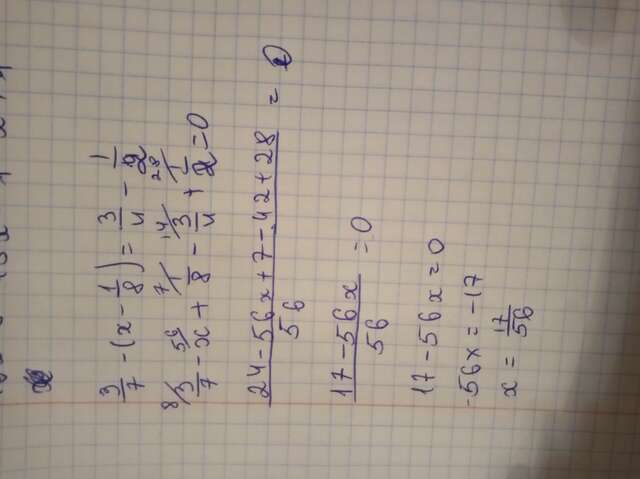 3/7 - (x - 1/8) = 3/4 - 1/2
8/ 3/7 - 56/ x + 7/ 1/8 - 14/ 3/4 + 28/ 1/2 = 0
24 - 56x + 7 - 42 + 28 / 56 = 0
17 - 56x / 56 = 0
17 - 56x = 0
-56x = -17
x = 17/56